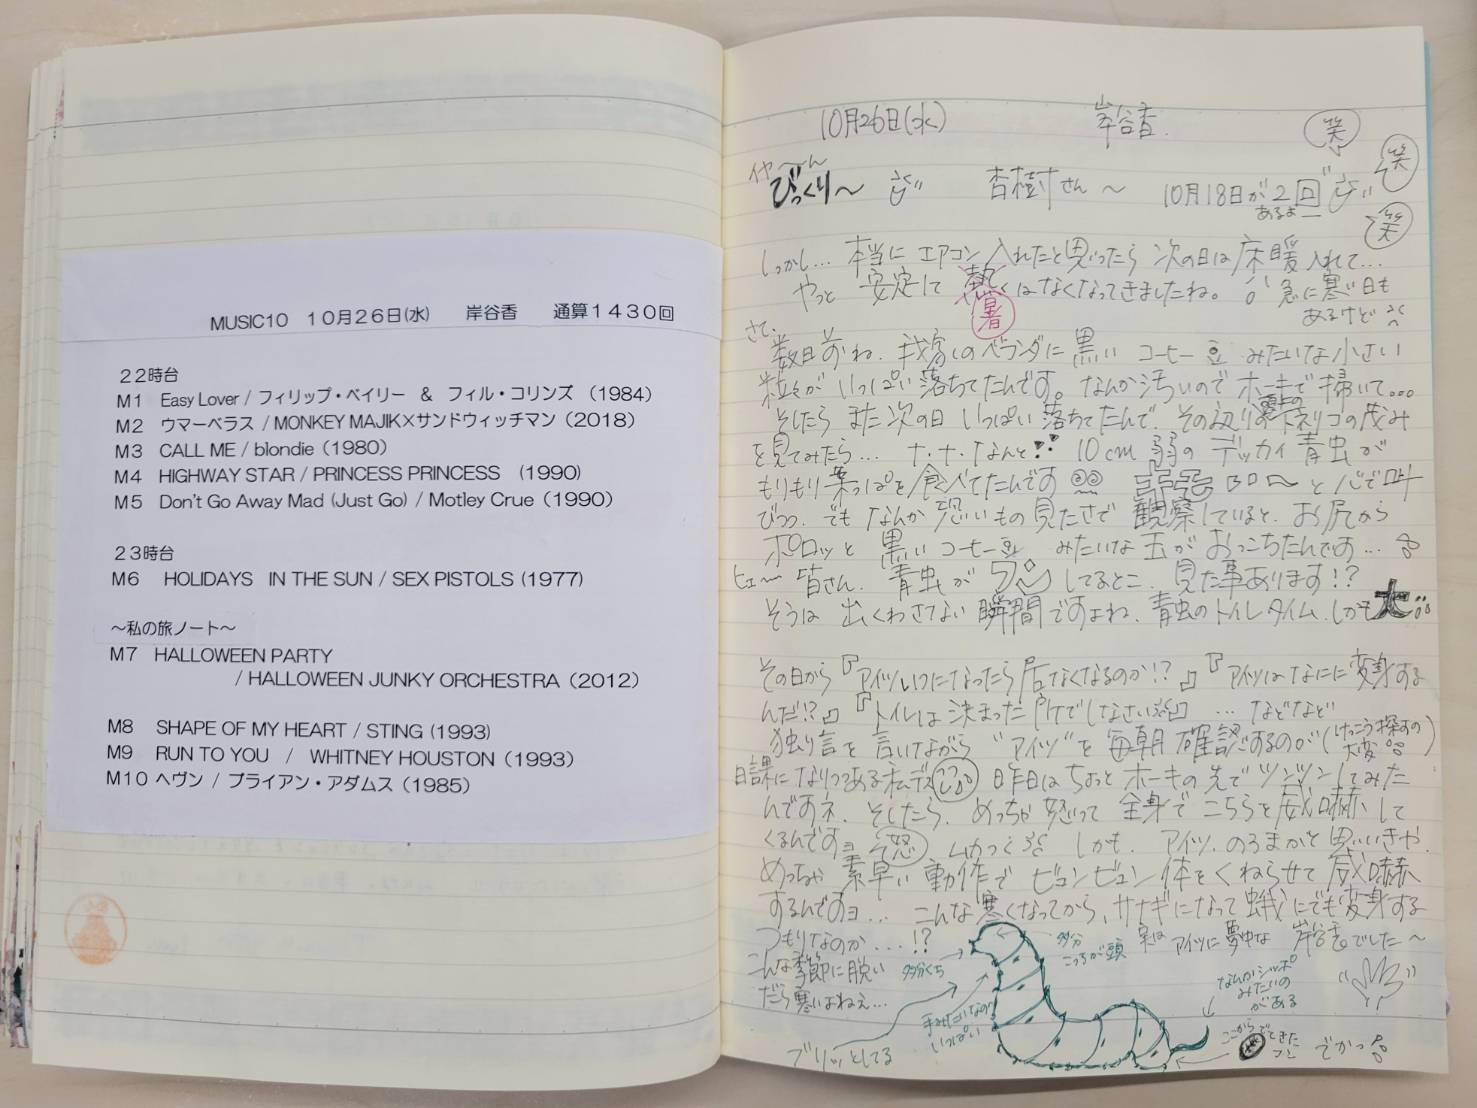 MUSIC10 10月26日(水) 岸谷香 通算1430回
22時台
M1 Easy Lover / フィリップ・ベイリー & フィル・コリンズ (1984)
M2 ウマーベラス / MONKEY MAJIK×サンドウィッチマン (2018)
M3 CALL ME / blondie (1980)
M4 HIGHWAY STAR / PRINCESS PRINCESS (1990)
M5 Don't Go Away Mad (Just Go) / Motley Crue (1990)
23時台
M6 HOLIDAYS IN THE SUN / SEX PISTOLS (1977)
〜私の旅ノート〜
M7 HALLOWEEN PARTY
/ HALLOWEEN JUNKY ORCHESTRA (2012)
M8 SHAPE OF MY HEART / STING (1993)
M9 RUN TO YOU / WHITNEY HOUSTON (1993)
M10 ヘヴン / ブライアン・アダムス (1985)
10月26日(水) 岸谷香.
笑
笑
笑
イヤ〜ん
びっくり〜 杏樹さん〜 10月18日が2回
あるよ
しっかし… 本当に エアコン 入れたと思ったら 次の日は 床暖 入れて…
やっと 安定して 暑くはなくなってきましたね。 急に寒い日も
あるけど
さて、
数日前ね、我家のベランダに 黒い コーヒー豆 みたいな小さい
粒々が いっぱい 落ちてたんです。なんか汚いので ホーキで 掃いて…
そしたら また 次の日 いっぱい 落ちてたんで、その辺りの 頭上の トネリコの茂み
を見てみたら… な・な・なんと!! 10cm弱の デッカイ 青虫が
もりもり葉っぱを食べてたんです と心で叫
びつつ、でも なんか 恐いもの 見たさで 観察していると、お尻から
ポロッと 黒い コーヒー豆 みたいな 玉が おっこちたんです…
ヒュ〜 皆さん、青虫が フン してるとこ、見た事あります!?
そうは 出くわさない 瞬間ですよね、青虫のトイレタイム、しかも 大!!
その日から『アイツいつになったら居なくなるのか!?』『アイツはなにに変身する
んだ!?』『トイレは 決まった 所でしなさい』…などなど
独り言を 言いながら "アイツ"を 毎朝 確認するのが(けっこう探すの
大変)
日課になりつつある私デス 昨日は ちょっと ホーキの 先で ツンツンしてみた
んですネ、そしたら、めっちゃ 怒って 全身で こちらを威嚇して
くるんですョ 怒 ムカつく しかも、アイツ、のろまかと思いきや、
めっちゃ 素早い 動作で ビュンビュン 体をくねらせて 威嚇
するんですョ… こんな 寒くなってから、サナギになって 蛾にでも変身する
つもりなのか…!? 実は アイツに夢中な 岸谷香でした〜
こんな季節に脱い
だら寒いよねぇ…
多分くち
多分
こっちが頭
手みたいなの
いっぱい
ブリッとしてる
なんかシッポ
みたいの
がある
ここからでてきた
フン
でかっ!!